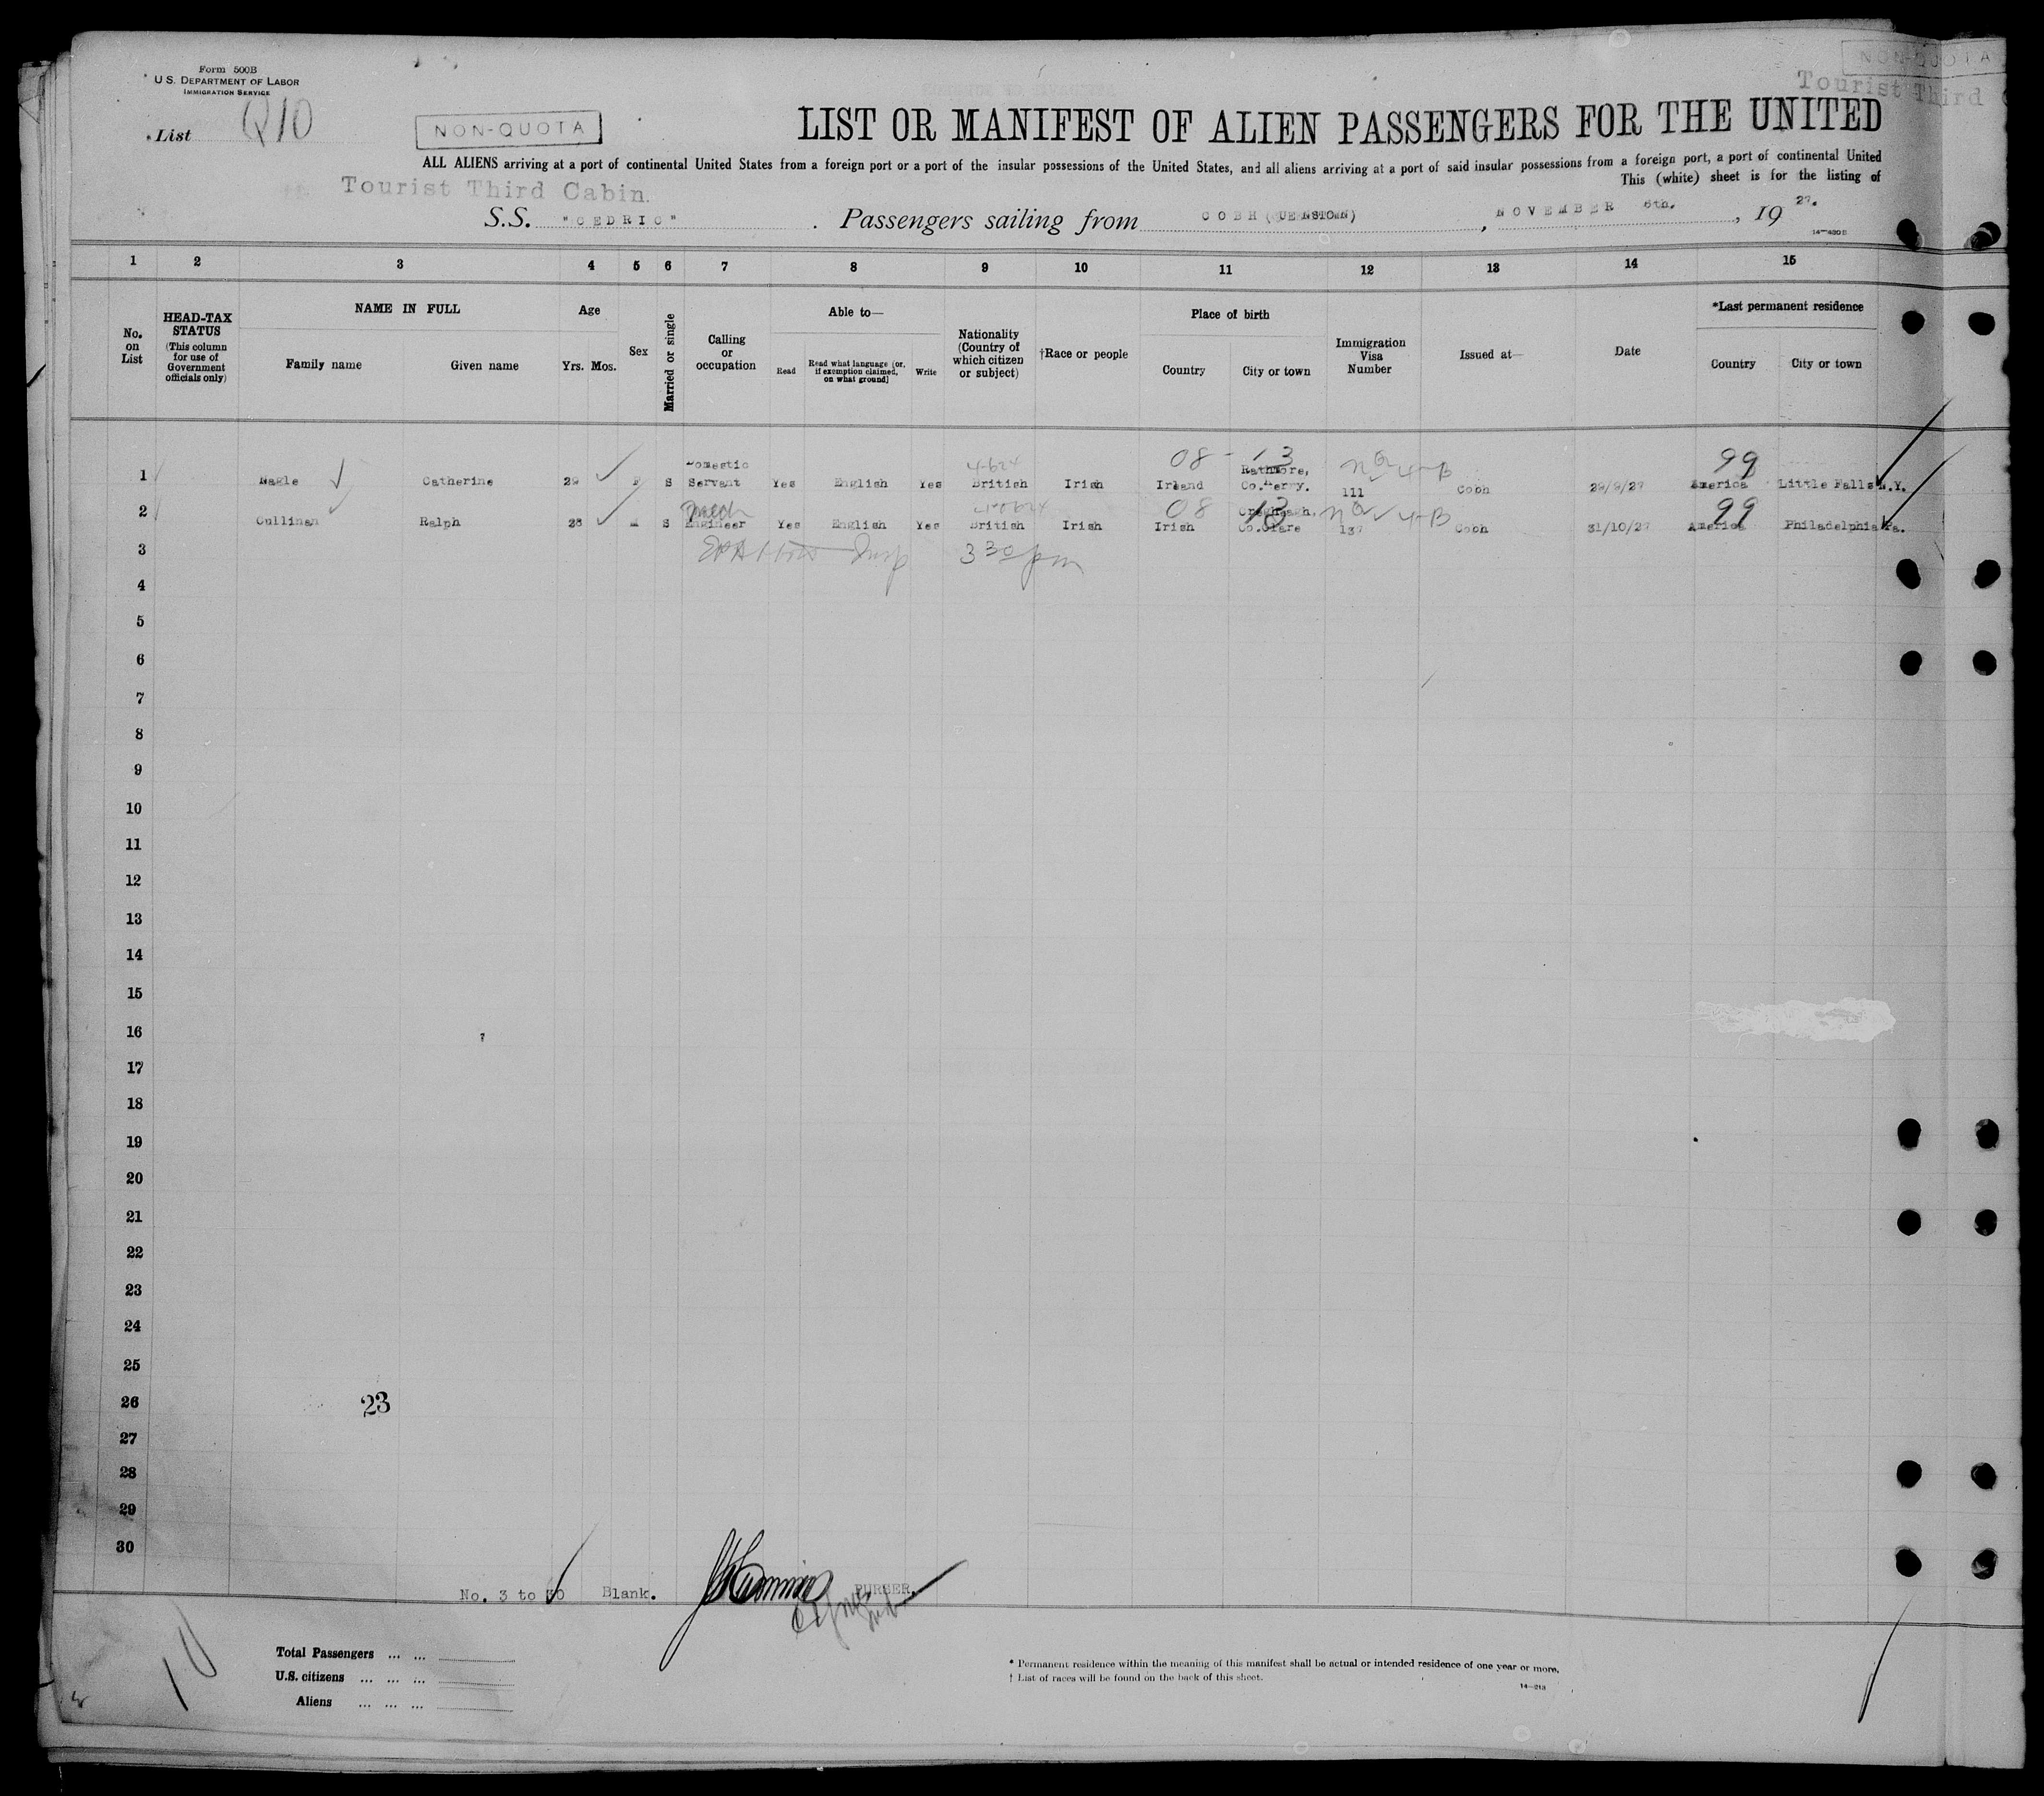 Form 500B
U.S. DEPARTMENT OF LABOR
IMMIGRATION SERVICE
List Q10
NON-QUOTA
NON-QUOTA
Tourist Third
LIST OR MANIFEST OF ALIEN PASSENGERS FOR THE UNITED
ALL ALIENS arriving at a port of continental United States from a foreign port or a port of the insular possessions of the United States, and all aliens arriving at a port of said insular possessions from a foreign port, a port of continental United
This (white) sheet is for the listing of
Tourist Third Cabin.
S.S. "CEDRIC" . Passengers sailing from COBH (QUEENSTOWN) , NOVEMBER 6th. , 19 27.
1 2 3 4 5 6 7 8 9 10 11 12 13 14 15
No. on List
HEAD-TAX STATUS (This column for use of Government officials only)
NAME IN FULL
Family name Given name
Age
Yrs. Mos.
Sex
Married or single
Calling or occupation
Able to—
Read
Read what language [or, if exemption claimed, on what ground]
Write
Nationality (Country of which citizen or subject)
†Race or people
Place of birth
Country City or town
Immigration Visa Number
Issued at—
Date
*Last permanent residence
Country City or town
4-624 08 - 13 NQ 4-B 99
1 Nagle Catherine 29 F S Domestic Servant Yes English Yes British Irish Ireland Rathmore, Co.Kerry. 111 Cobh 29/9/27 America Little Falls N.Y.
Mech 08 13 NQ 4-B 99
2 Cullinan Ralph 28 M S Engineer Yes English Yes British Irish Irish Co.Clare 137 Cobh 31/10/27 America Philadelphia Pa.
3 Insp 3 30 pm
4
5
6
7
8
9
10
11
12
13
14
15
16
17
18
19
20
21
22
23
24
25
26 23
27
28
29
30
No. 3 to 30 Blank. PURSER.
10
Total Passengers ... ...
U.S. citizens ... ... ...
Aliens ... ... ...
* Permanent residence within the meaning of this manifest shall be actual or intended residence of one year or more.
† List of races will be found on the back of this sheet.
14—213